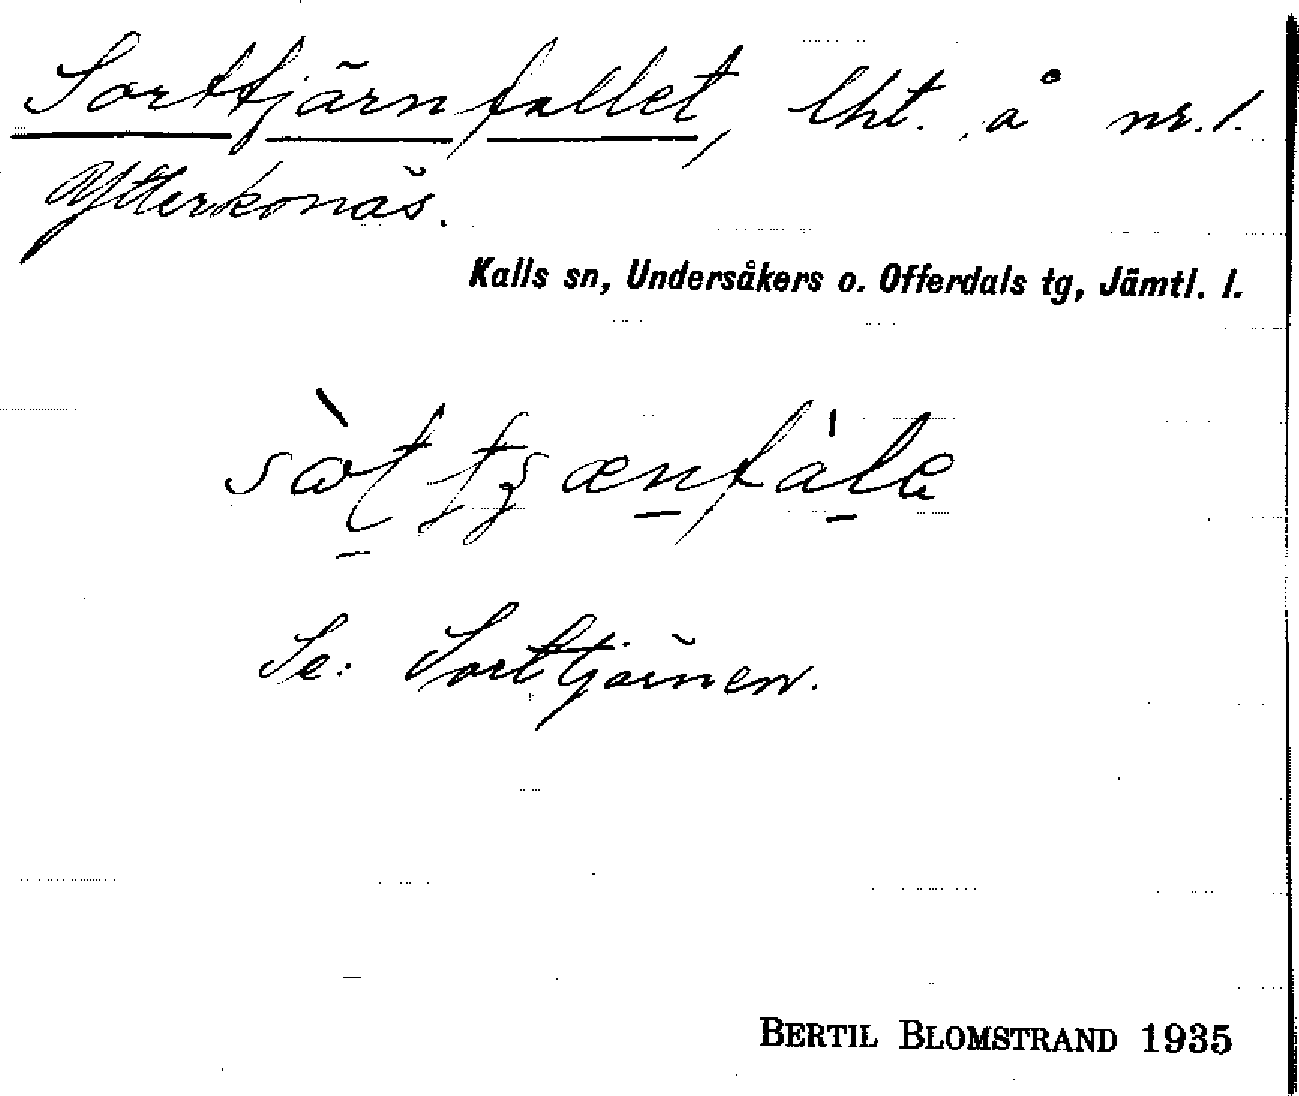 Sorttjärnfallet, lht. å nr. 1.
Ytterkonäs.
Kalls sn, Undersåkers o. Offerdals tg, Jämtl. l.
Se: Sorttjärnen.
BERTIL BLOMSTRAND 1935